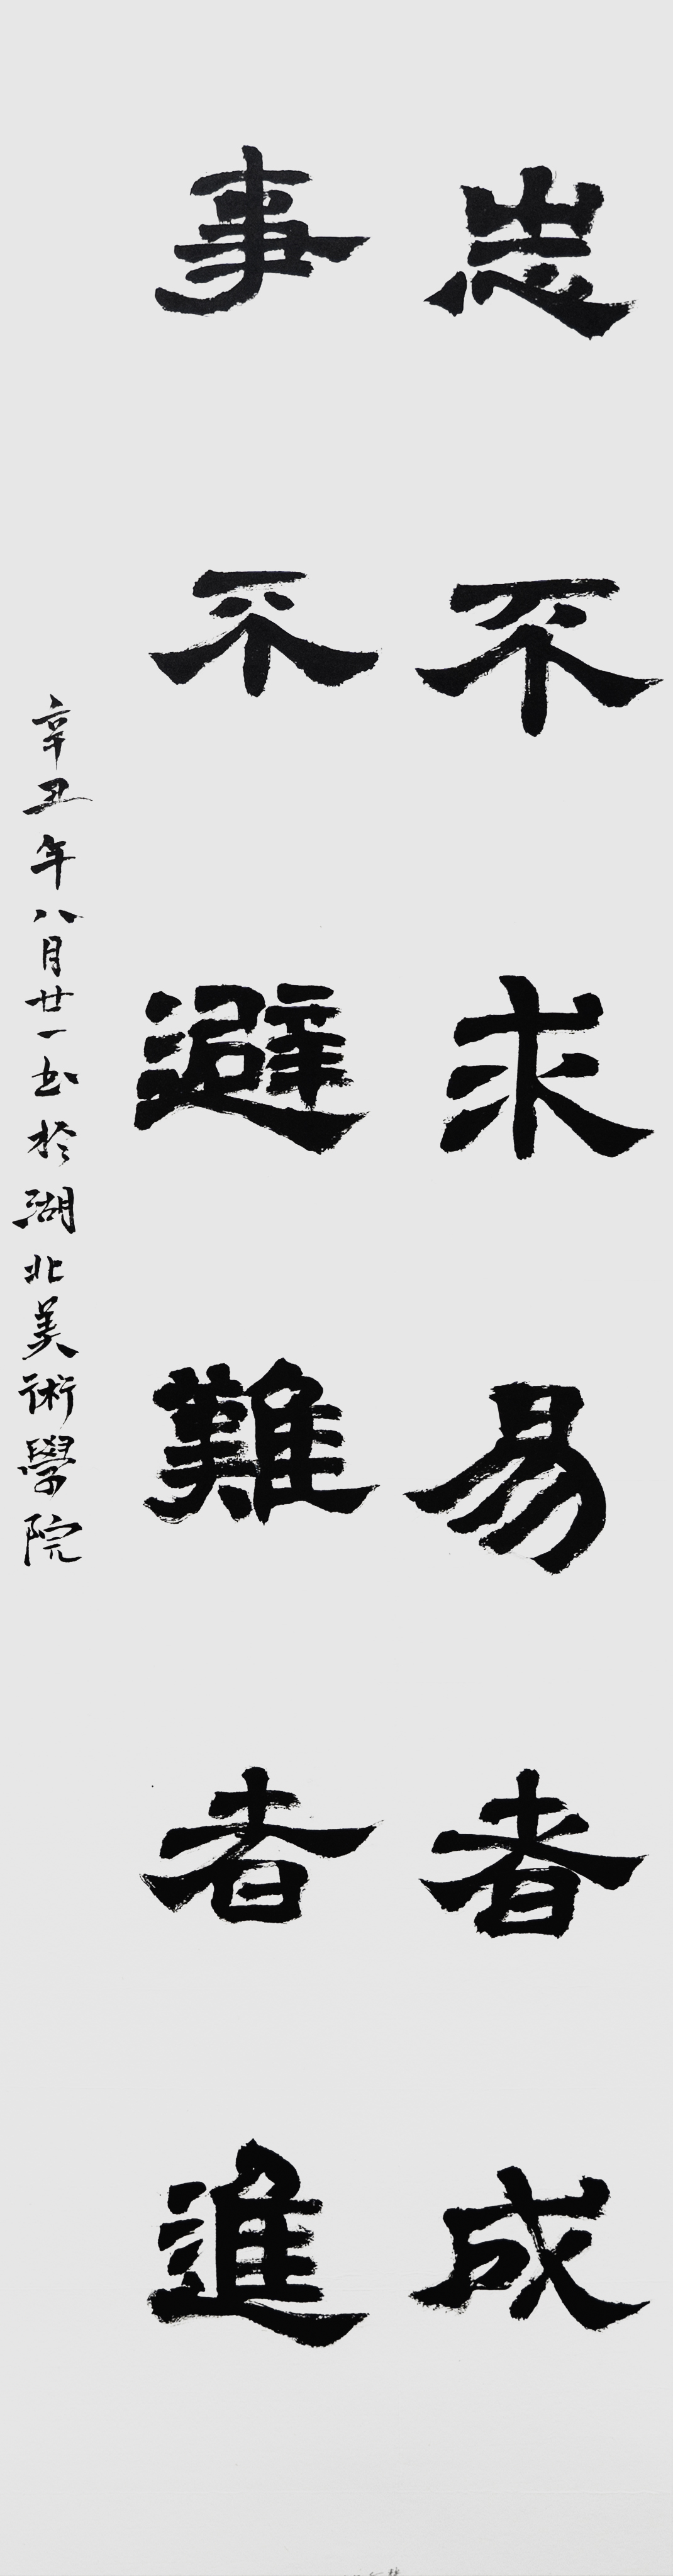 志不求易者成
事不避難者進
辛丑年八月廿一书於湖北美術學院